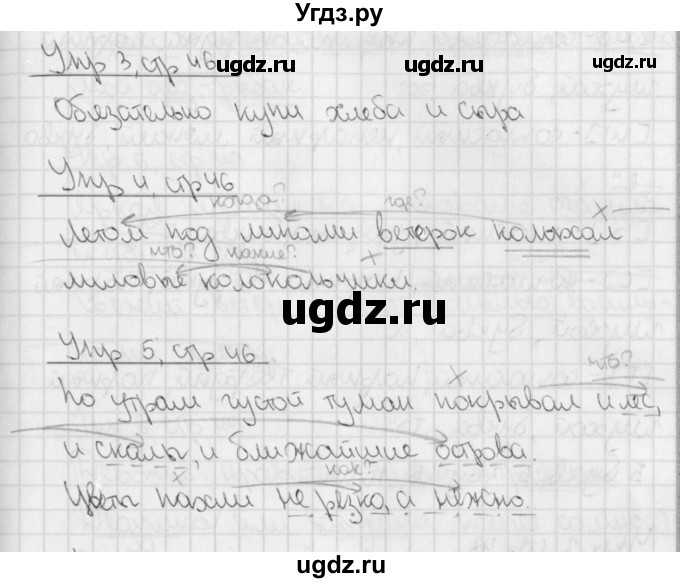 Угдз.ру
Упр 3, стр 46
ugdz.ru ugdz.ru
Обязательно купи хлеба и сыра
Упр 4, стр 46
когда? где? х
Летом под липами ветерок колыхал
что? какие? х
лиловые колокольчики.
ugdz.ru ugdz.ru
Упр 5, стр 46
х что?
По утрам густой туман покрывал и лес,
и скалы, и ближайшие острова.
х как?
Цветы пахли не резко, а нежно.
ugdz.ru ugdz.ru
ugdz.ru